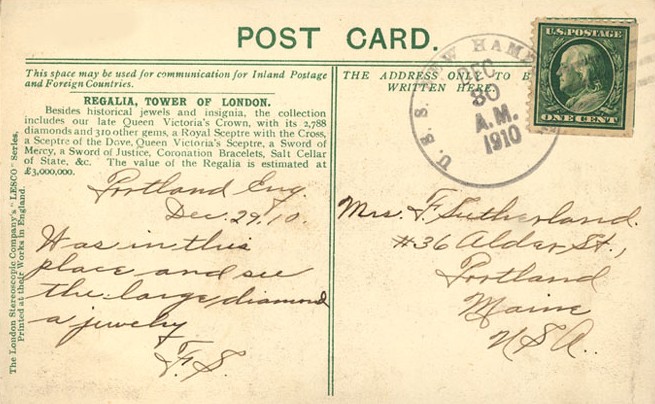 POST CARD.
This space may be used for communication for Inland Postage
and Foreign Countries.
REGALIA, TOWER OF LONDON.
Besides historical jewels and insignia, the collection
includes our late Queen Victoria's Crown, with its 2,788
diamonds and 310 other gems, a Royal Sceptre with the Cross,
a Sceptre of the Dove, Queen Victoria's Sceptre, a Sword of
Mercy, a Sword of Justice, Coronation Bracelets, Salt Cellar
of State, &c. The value of the Regalia is estimated at
£3,000,000.
Portland Eng.
Dec. 29.10.
Was in this
place and see
the large diamond
a jewelry
F.S.
The London Stereoscopic Company's "LESCO" Series.
Printed at their Works in England.
THE ADDRESS ONLY TO B
WRITTEN HERE.
U.S.S. NEW HAMP
DEC
30
A.M.
1910
U.S. POSTAGE
ONE CENT
Mrs. F. Sutherland.
#36 Alder St.,
Portland
Maine
U.S.A..